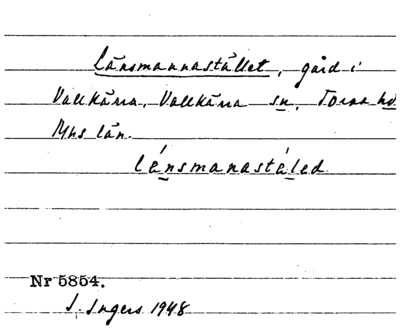 Länsmannastället, gård i
Vallkärra, Vallkärra sn, Torna hd
Mhs län.
lánsmanastáled
Nr 5854.
I. Ingers 1948